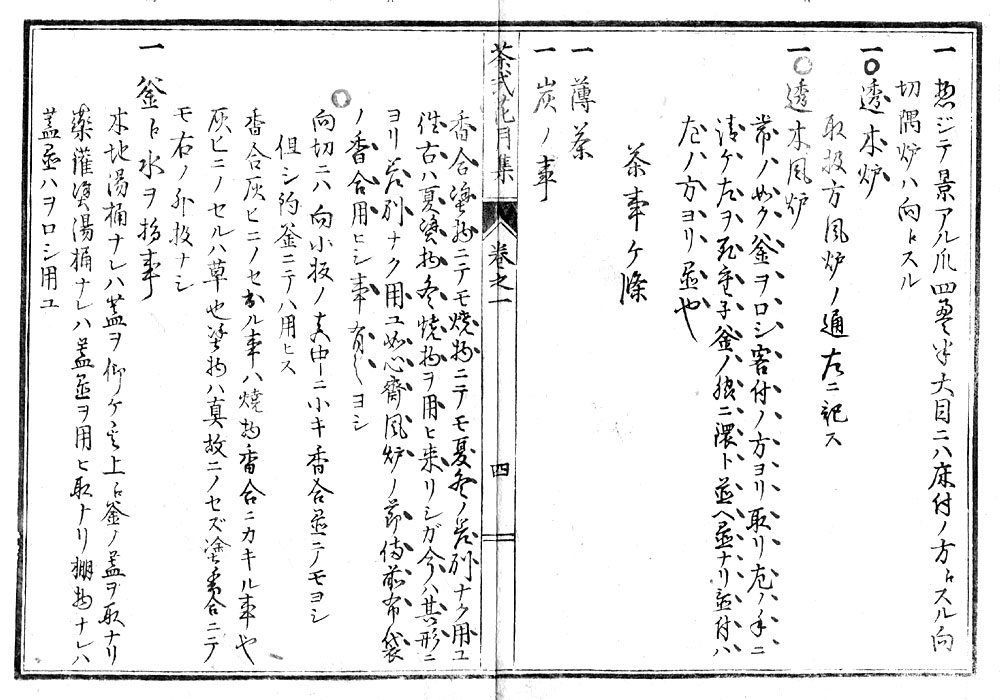 一 惣ジテ景アル爪四畳半大目ニハ床付ノ方トスル向
切隅炉ハ向トスル
一〇透木炉
取扱方風炉ノ通左ニ記ス
一〇透木風炉
常ノ如ク釜ヲロシ客付ノ方ヨリ取リ右ノ手ニ
請ケ左ヲ
釜ノ
ニ置ト並ヘ置ナリ
付ハ
右ハ方ヨリ置也
茶事ケ條
一 薄茶
一 炭ノ事
茶式花月集
巻之一
四
香合塗物ニテモ焼物ニテモ夏冬ノ差別ナク用ユ
往古ハ夏塗物冬焼物ヲ用ヒ来リシガ今ハ其形ニ
ヨリ差別ナク用ユ如心齋風炉ノ節備前布袋
ノ香合用ヒシ事有之ヨシ
〇向切ニハ向小板ノ真中ニ小キ香合置ニノモヨシ
但シ釣釜ニテハ用ヒス
香合灰ヒニノセ出ル事ハ焼物香合ニカキル事也
灰ヒニノセルハ草也塗物ハ真故ニノセズ塗香合ニテ
モ右ノ外扱ナシ
一 釜ト水ヲ
事
木地湯桶ナレハ蓋ヲ仰ケ其上ト釜ノ蓋ヲ取ナリ
薬灌塗湯桶ナレハ蓋置ヲ用ヒ取ナリ棚物ナレハ
蓋置ハヲロシ用ユ